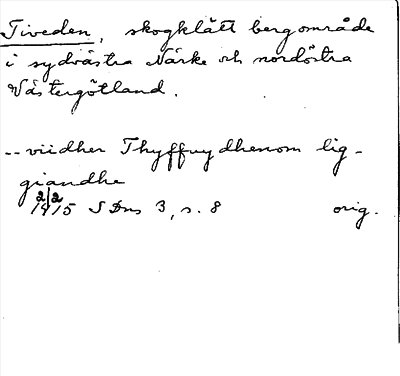 Tiveden, skogklätt bergområde
i sydvästra Närke och nordöstra
Västergötland.
-- viidher Thyffuydhenom lig-
giandhe
2/2
1415 SDns 3, s. 8 orig.